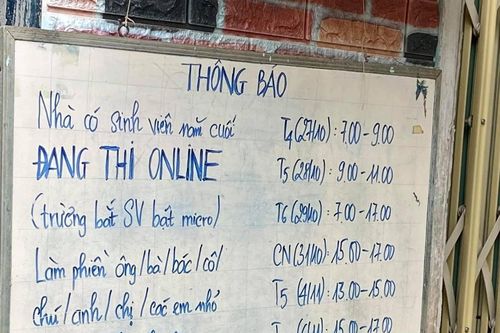 THÔNG BÁO
Nhà có sinh viên năm cuối
ĐANG THI ONLINE
(trường bắt SV bật micro)
Làm phiền ông/bà/bác/cô/
chú/anh/chị/các em nhỏ
T4(27/10): 7.00 - 9.00
T5(28/10): 9.00 - 11.00
T6(29/10): 7.00 - 17.00
CN(31/10): 15.00 - 17.00
T5(4/11): 13.00 - 15.00